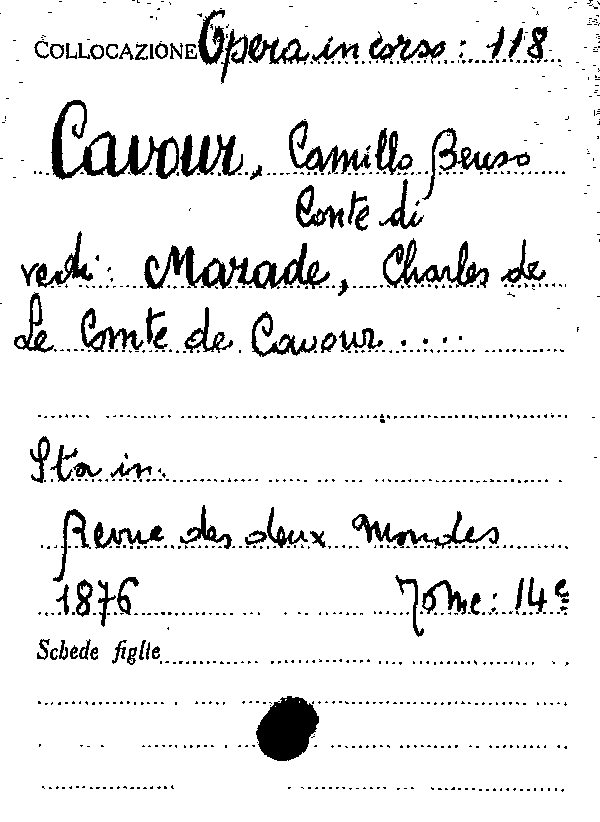 COLLOCAZIONE Opera in corso: 118
Cavour, Camillo Benso
Conte di
vedi: Mazade, Charles de
Le Comte de Cavour....
Sta in.
Revue des deux Mondes
1876 Tome: 14e
Schede figlie